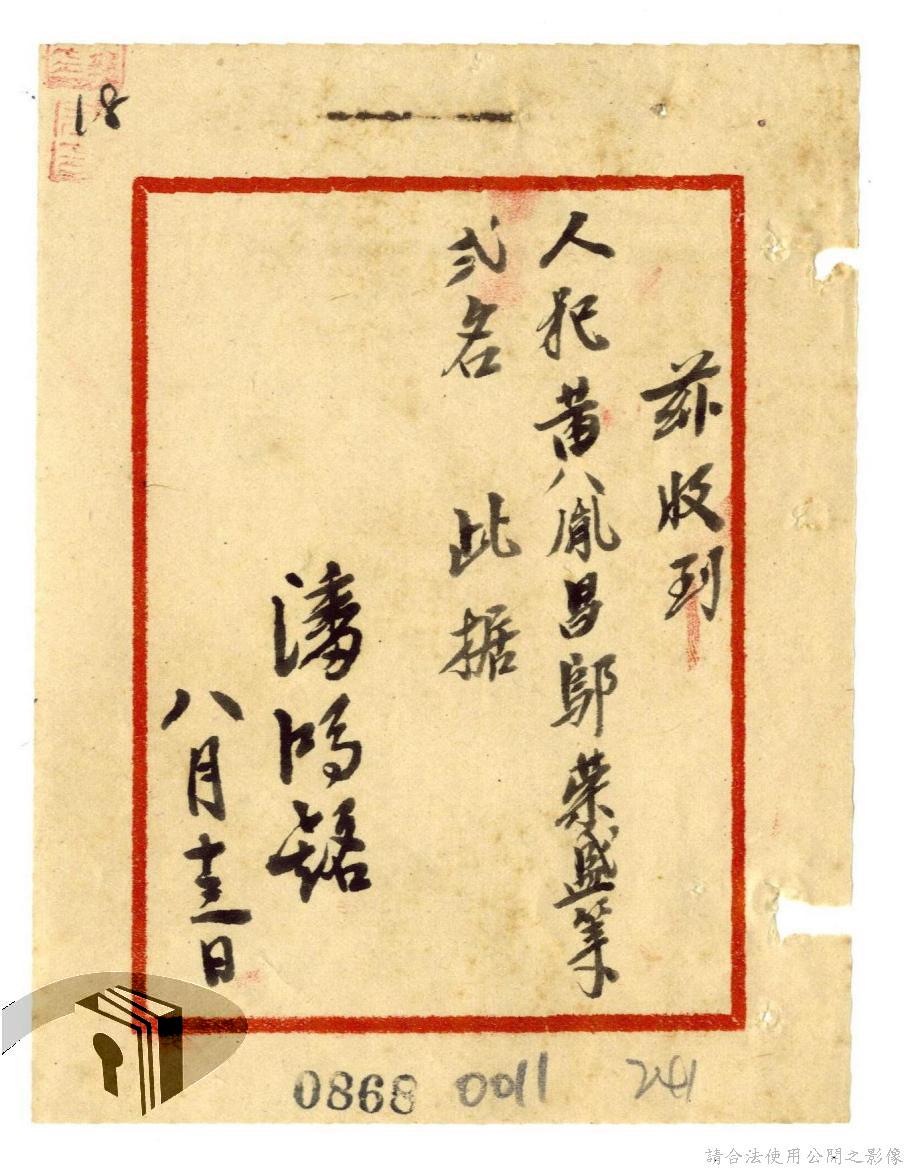 18
茲收到
人犯黃八胤昌鄔榮盛等
弍名 此据
潘鴻
八月十三日
0868 0011 241
請合法使用公開之影像